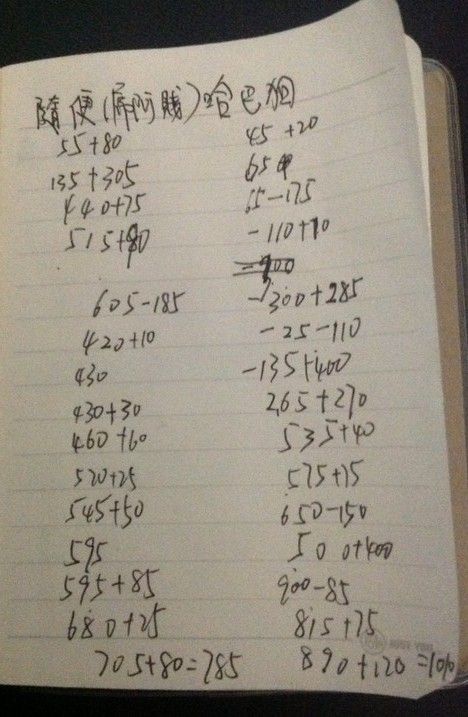 隨便(屌阿賤)哈巴狗
55+80
135+305
440+75
515+90
605-185
420+10
430
430+30
460+60
520+25
545+50
595
595+85
680+25
705+80=785
45+20
65
65-175
-110+10
-300+285
-25-110
-135+400
265+270
535+40
575+75
650-150
500+400
900-85
815+75
890+120=1010